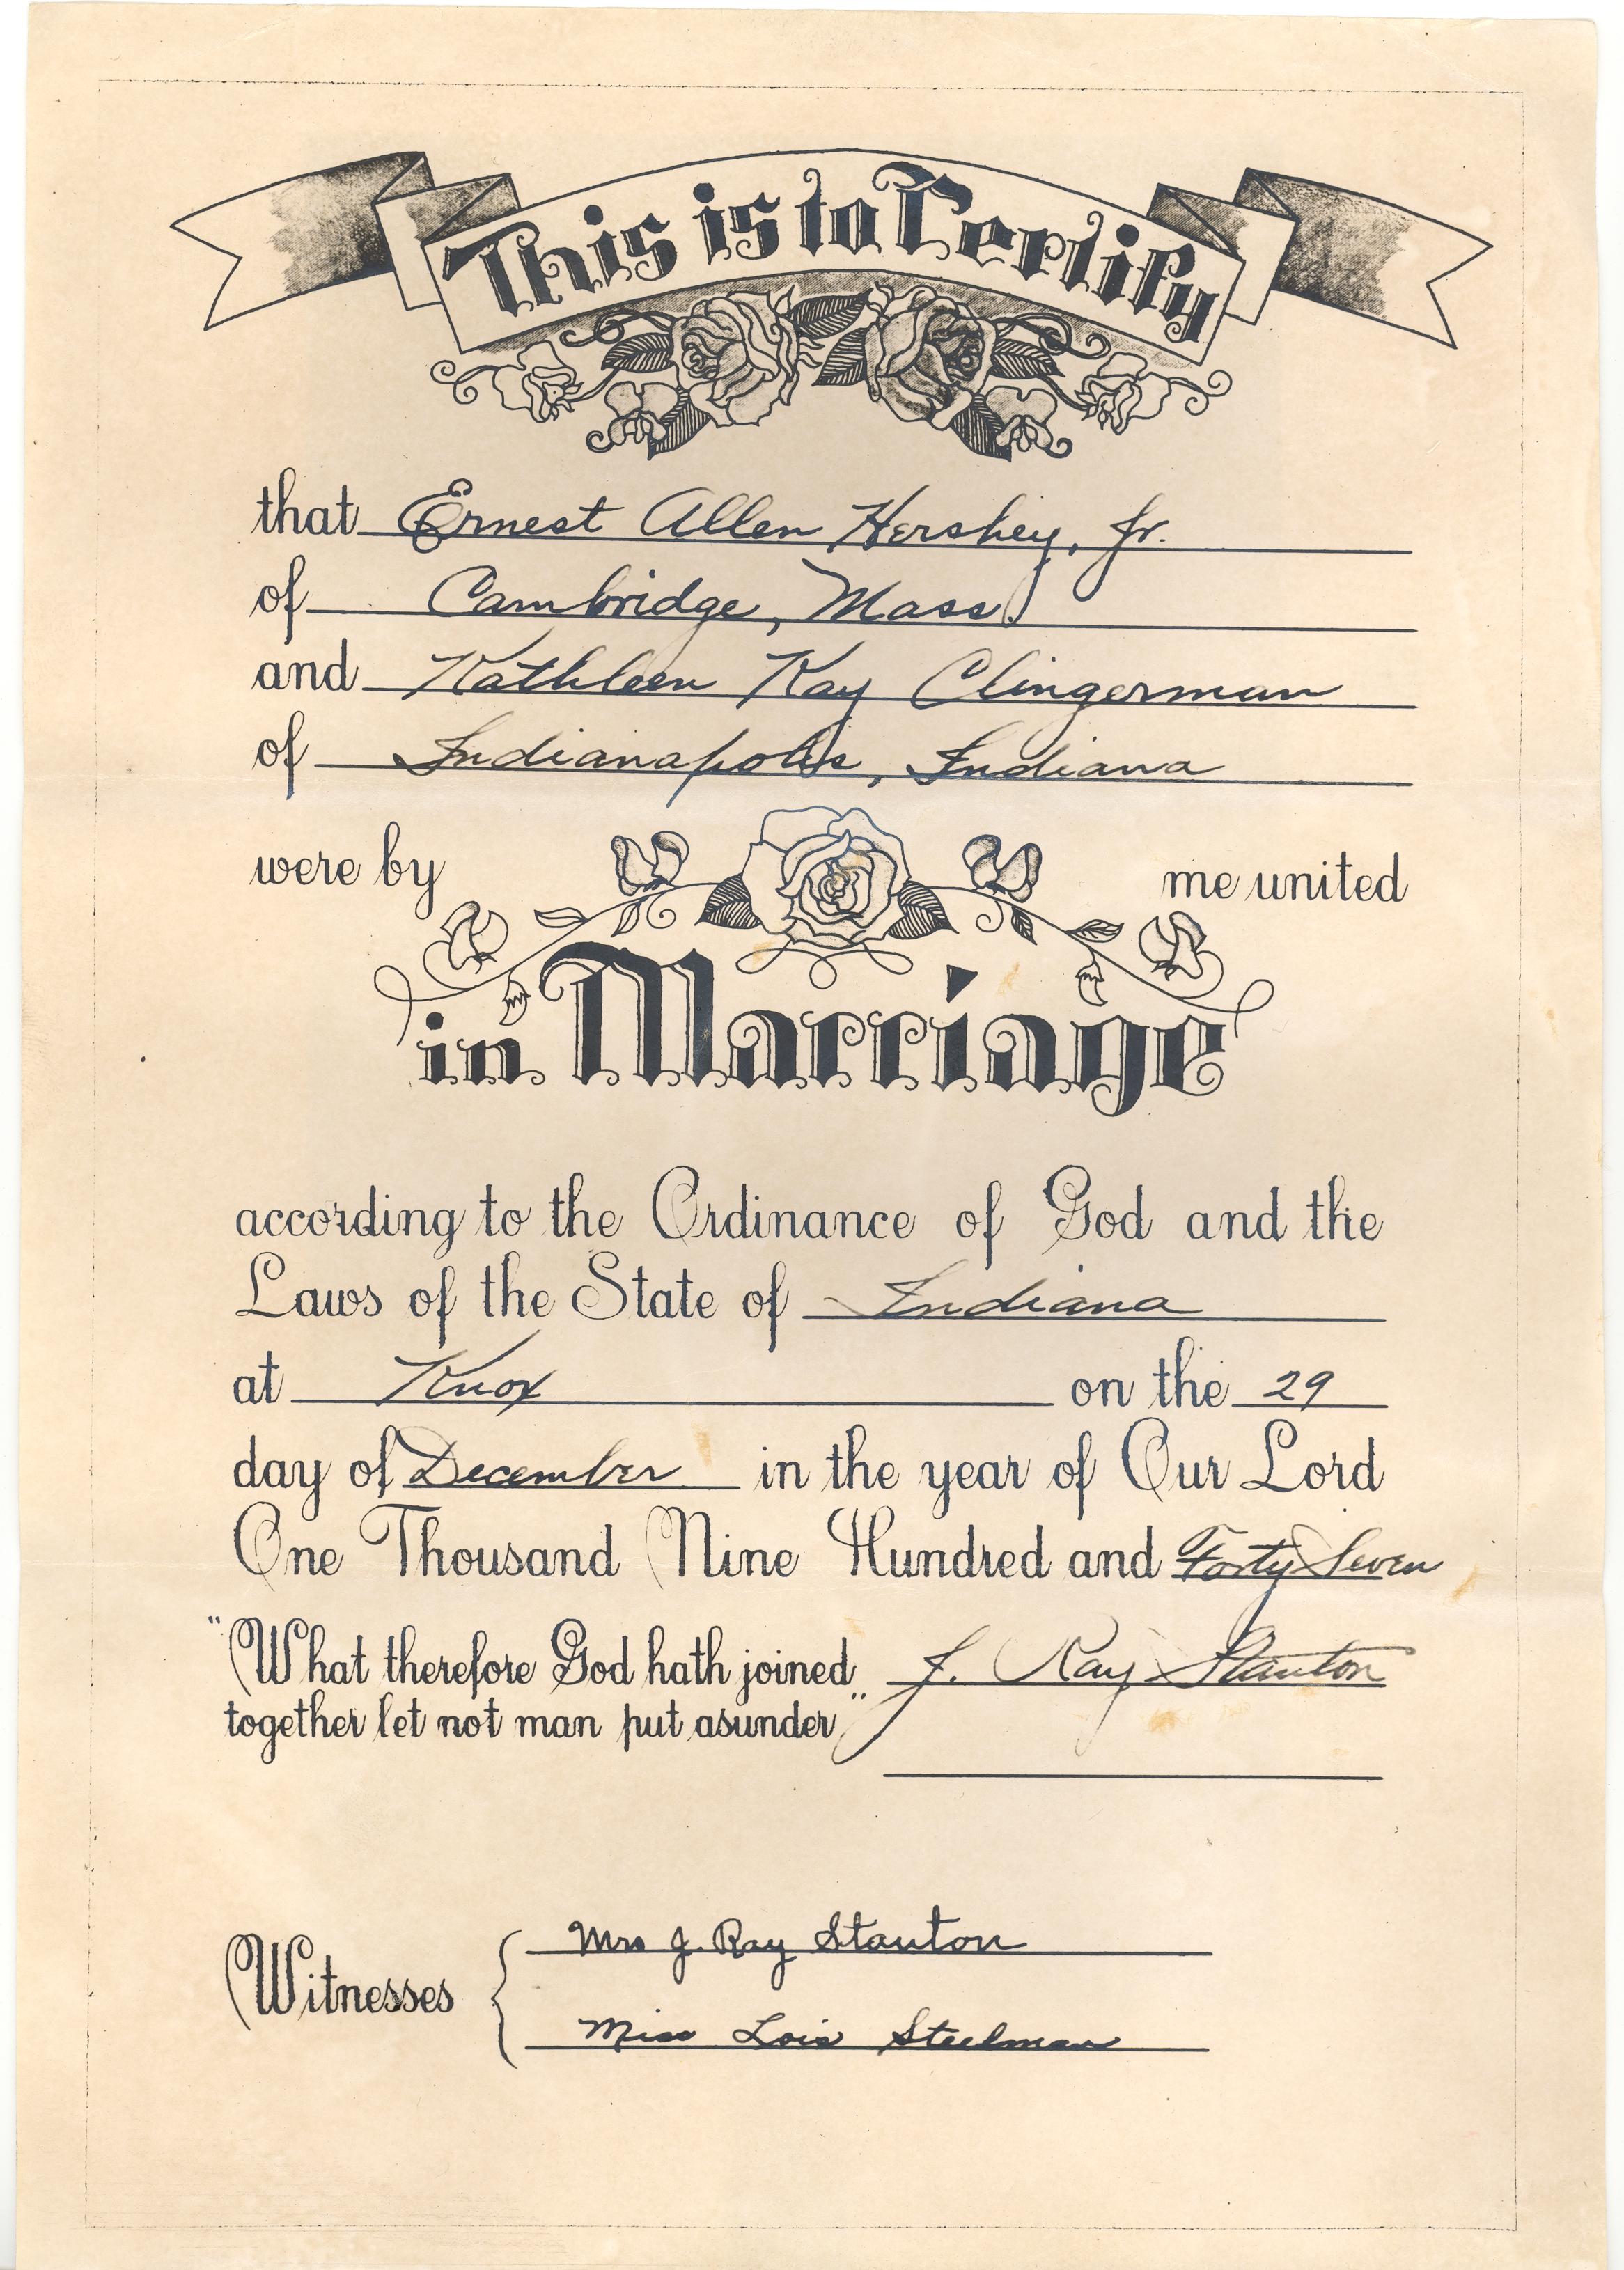 This is to Certify
that Ernest Allen Hershey, Jr.
of Cambridge, Mass
and Kathleen Kay Clingerman
of Indianapolis, Indiana
were by me united
in Marriage
according to the Ordinance of God and the
Laws of the State of Indiana
at Knox on the 29
day of December in the year of Our Lord
One Thousand Nine Hundred and Forty Seven
"What therefore God hath joined J. Ray Stanton
together let not man put asunder"
Witnesses { Mrs J. Ray Stanton
Miss Lois Steelman